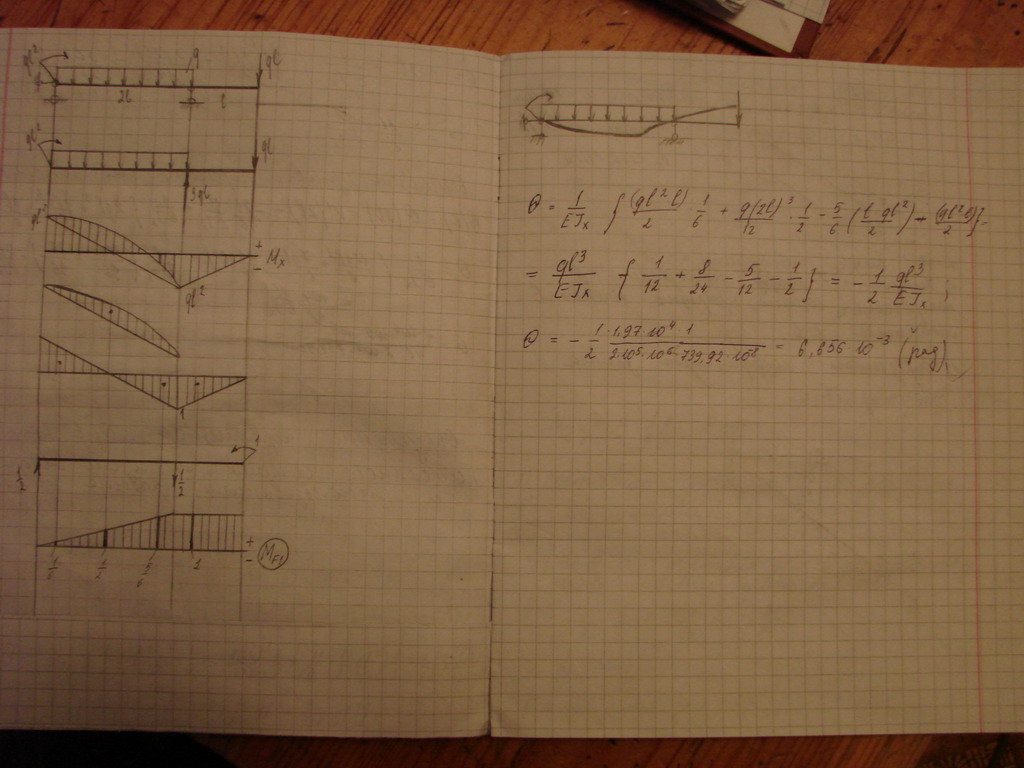 ql² q ql
2l l
ql² ql
3ql
ql² + Mx −
ql²
1
1
1/2 1/2
+ M_F1 −
1/6 1/2 5/6 1
θ = 1/EJx { (ql² l)/2 · 1/6 + q(2l)³/12 · 1/2 − 5/6 (l · ql²/2) − (ql² l)/2 } =
= ql³/EJx { 1/12 + 8/24 − 5/12 − 1/2 } = − 1/2 ql³/EJx ;
θ = − 1/2 · 1,97·10⁴·1 / 2·10⁵·10⁶·739,92·10⁻⁸ = 6,656·10⁻³ (рад)